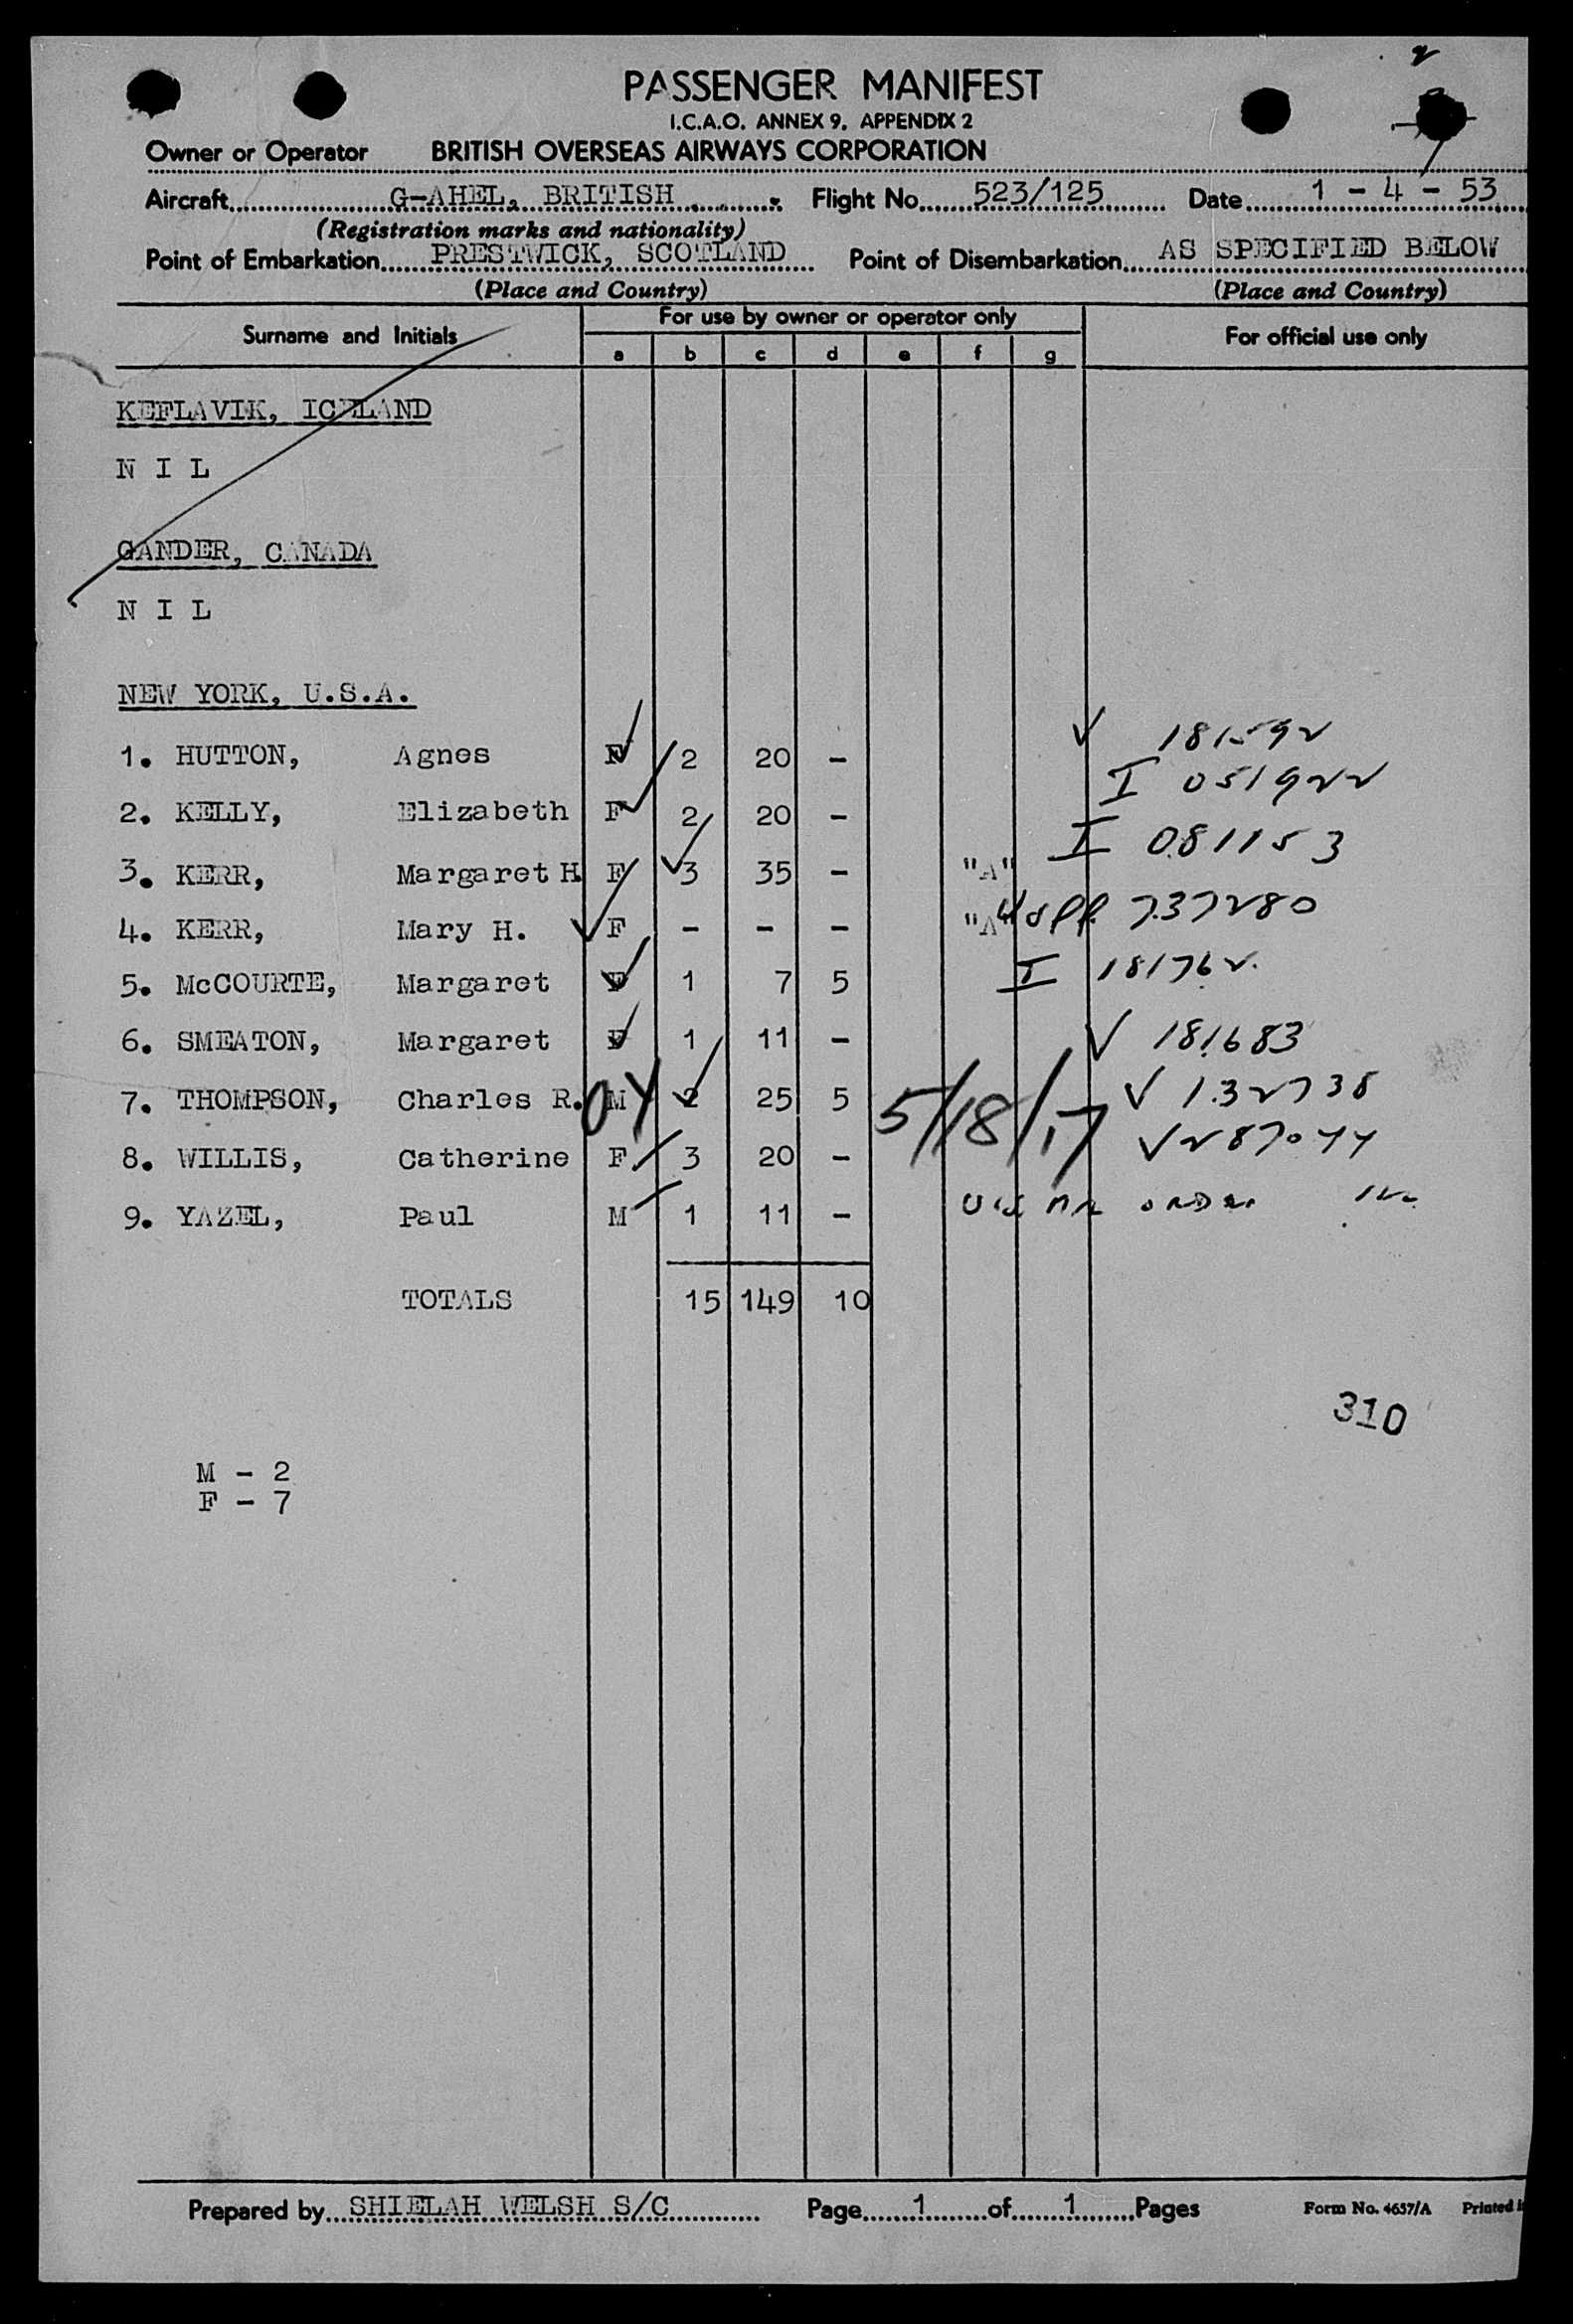 2
PASSENGER MANIFEST
I.C.A.O. ANNEX 9, APPENDIX 2
Owner or Operator BRITISH OVERSEAS AIRWAYS CORPORATION
Aircraft G-AHEL, BRITISH Flight No. 523/125 Date 1 - 4 - 53
(Registration marks and nationality)
Point of Embarkation PRESTWICK, SCOTLAND Point of Disembarkation AS SPECIFIED BELOW
(Place and Country) (Place and Country)
Surname and Initials For use by owner or operator only For official use only
a b c d e f g
KEFLAVIK, ICELAND
N I L
GANDER, CANADA
N I L
NEW YORK, U.S.A.
1. HUTTON, Agnes F 2 20 - V 181592
2. KELLY, Elizabeth F 2 20 - I 051922
3. KERR, Margaret H F 3 35 - "A" I 081153
4. KERR, Mary H. F - - - "A" USPP. 737280
5. McCOURTE, Margaret F 1 7 5 I 181762
6. SMEATON, Margaret F 1 11 - V 181683
7. THOMPSON, Charles R. M 2 25 5 5/18/17 V 132738
8. WILLIS, Catherine F 3 20 - V 287044
9. YAZEL, Paul M 1 11 -
TOTALS 15 149 10
310
M - 2
F - 7
Prepared by SHIELAH WELSH S/C Page 1 of 1 Pages Form No. 4637/A Printed